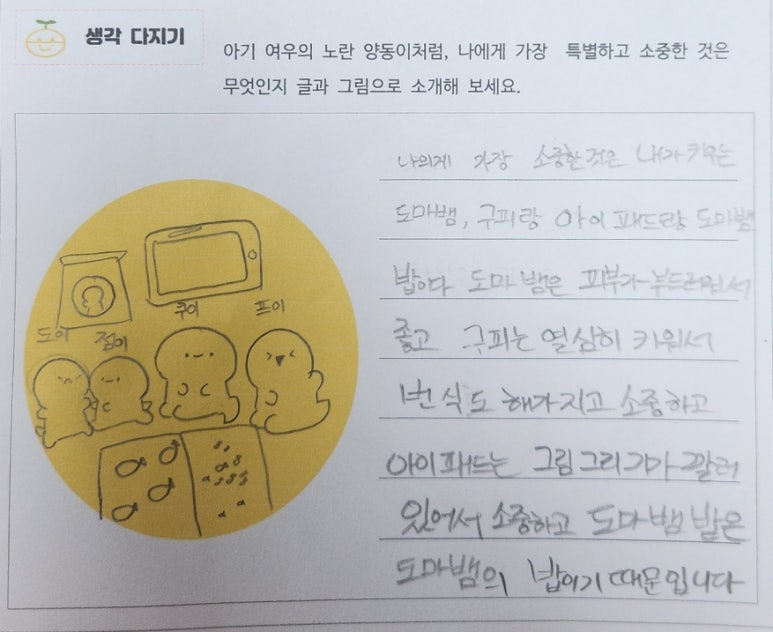 생각 다지기
아기 여우의 노란 양동이처럼, 나에게 가장 특별하고 소중한 것은
무엇인지 글과 그림으로 소개해 보세요.
도이
점이
쿠이
프이
나의게 가장 소중한것은 내가 키우는
도마뱀, 구피랑 아이패드랑 도마뱀
밥이다 도마뱀은 피부가 부드러워서
좋고 구피는 열심히 키워서
번식도 해가지고 소중하고
아이패드는 그림그리기가 깔려
있어서 소중하고 도마뱀 밥은
도마뱀의 밥이기 때문입니다